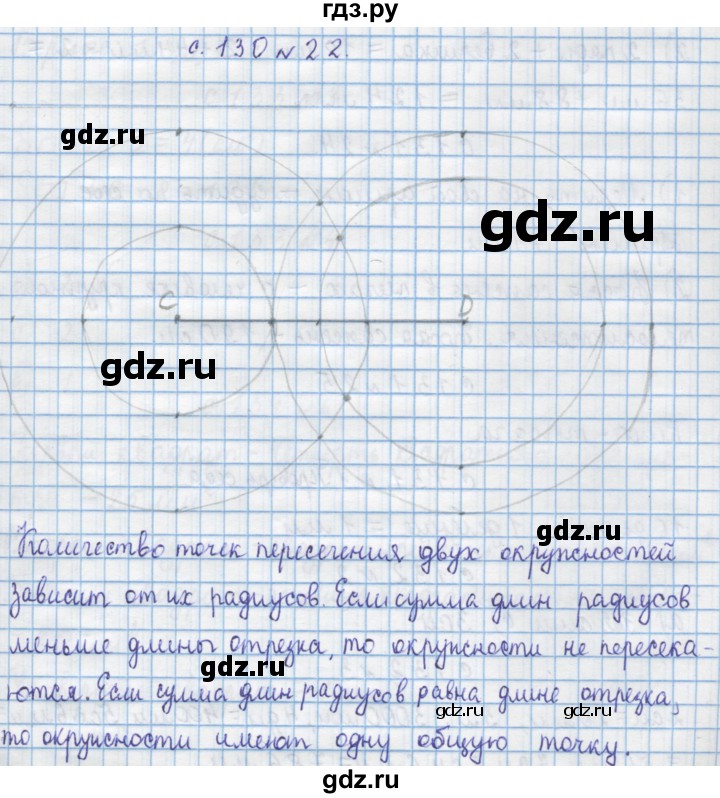 гдз.ру
с. 130 № 22.
gdz.ru
gdz.ru
C
D
gdz.ru
gdz.ru
Количество точек пересечения двух окружностей
зависит от их радиусов. Если сумма длин радиусов
меньше длины отрезка, то окружности не пересека-
gdz.ru
ются. Если сумма длин радиусов равна длине отрезка,
gdz.ru
gdz.ru
то окружности имеют одну общую точку.
гдз.ру